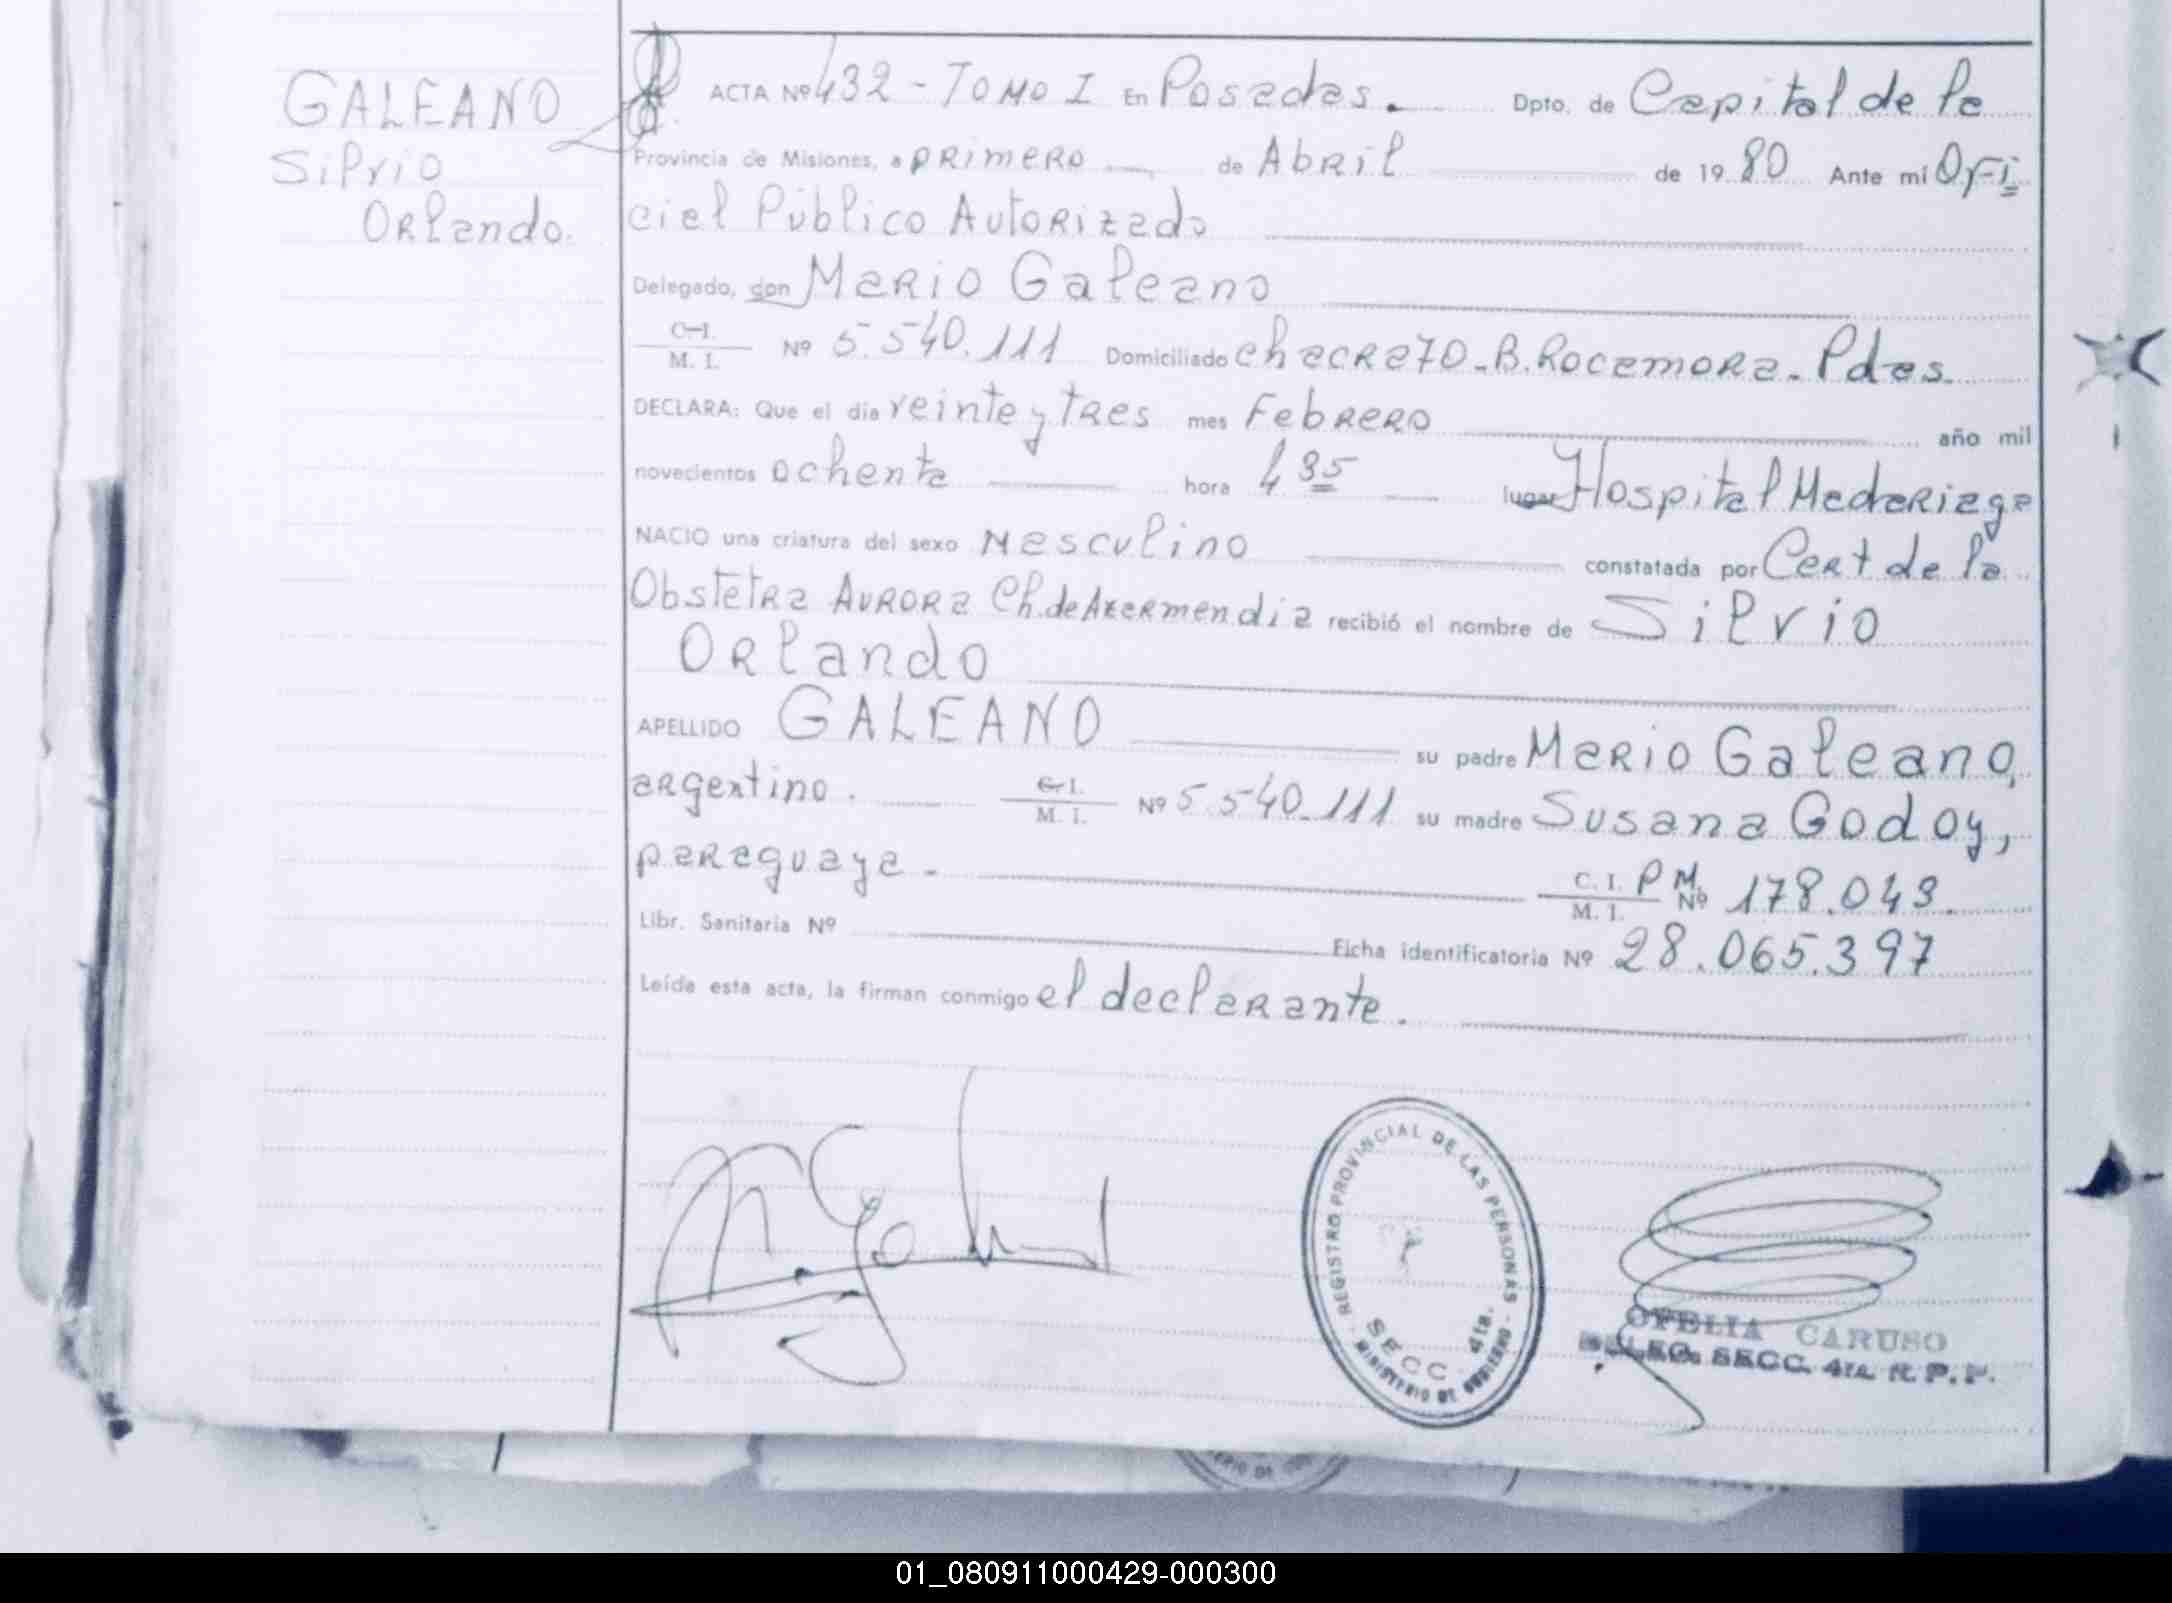 GALEANO
Silvio
Orlando.
ACTA Nº 432 - TOMO I En Posadas. Dpto. de Capital de la
Provincia de Misiones, a primero de Abril de 19 80 Ante mi Ofi
cial Público Autorizado
Delegado, don Mario Galeano
C.I. M. I. Nº 5.540.111 Domiciliado chacra 70_B. Rocamora_Pdas.
DECLARA: Que el día veinte y tres mes Febrero año mil
novecientos ochenta hora 4 35 lugar Hospital Madariaga
NACIO una criatura del sexo Masculino constatada por Cert de la
Obstetra Aurora Ch. de Azarmendia recibió el nombre de Silvio
Orlando
APELLIDO GALEANO su padre Mario Galeano,
argentino. C.I. M. I. Nº 5.540.111 su madre Susana Godoy,
paraguaya - C. I. M. I. P M. Nº 178.043.
Libr. Sanitaria Nº Ficha identificatoria Nº 28.065.397
Leída esta acta, la firman conmigo el declarante.
REGISTRO PROVINCIAL DE LAS PERSONAS
SECC. 4ta.
MINISTERIO DE GOBIERNO
OFELIA CARUSO
DELEG. SECC. 4ta. R. P. P.
01_080911000429-000300